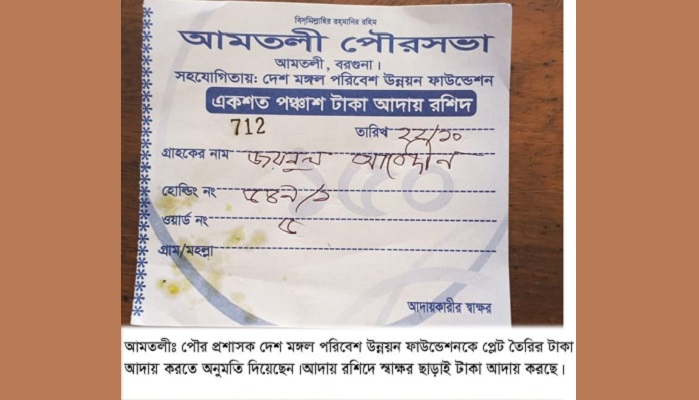 বিসমিল্লাহির রহমানির রহিম
আমতলী পৌরসভা
আমতলী, বরগুনা।
সহযোগিতায়: দেশ মঙ্গল পরিবেশ উন্নয়ন ফাউন্ডেশন
একশত পঞ্চাশ টাকা আদায় রশিদ
712 তারিখ ২২/১০
গ্রাহকের নাম জয়নুল আবেদীন
হোল্ডিং নং
ওয়ার্ড নং ৫
গ্রাম/মহল্লা
১৫০
আদায়কারীর স্বাক্ষর
আমতলীঃ পৌর প্রশাসক দেশ মঙ্গল পরিবেশ উন্নয়ন ফাউন্ডেশনকে প্লেট তৈরির টাকা
আদায় করতে অনুমতি দিয়েছেন।আদায় রশিদে স্বাক্ষর ছাড়াই টাকা আদায় করছে।